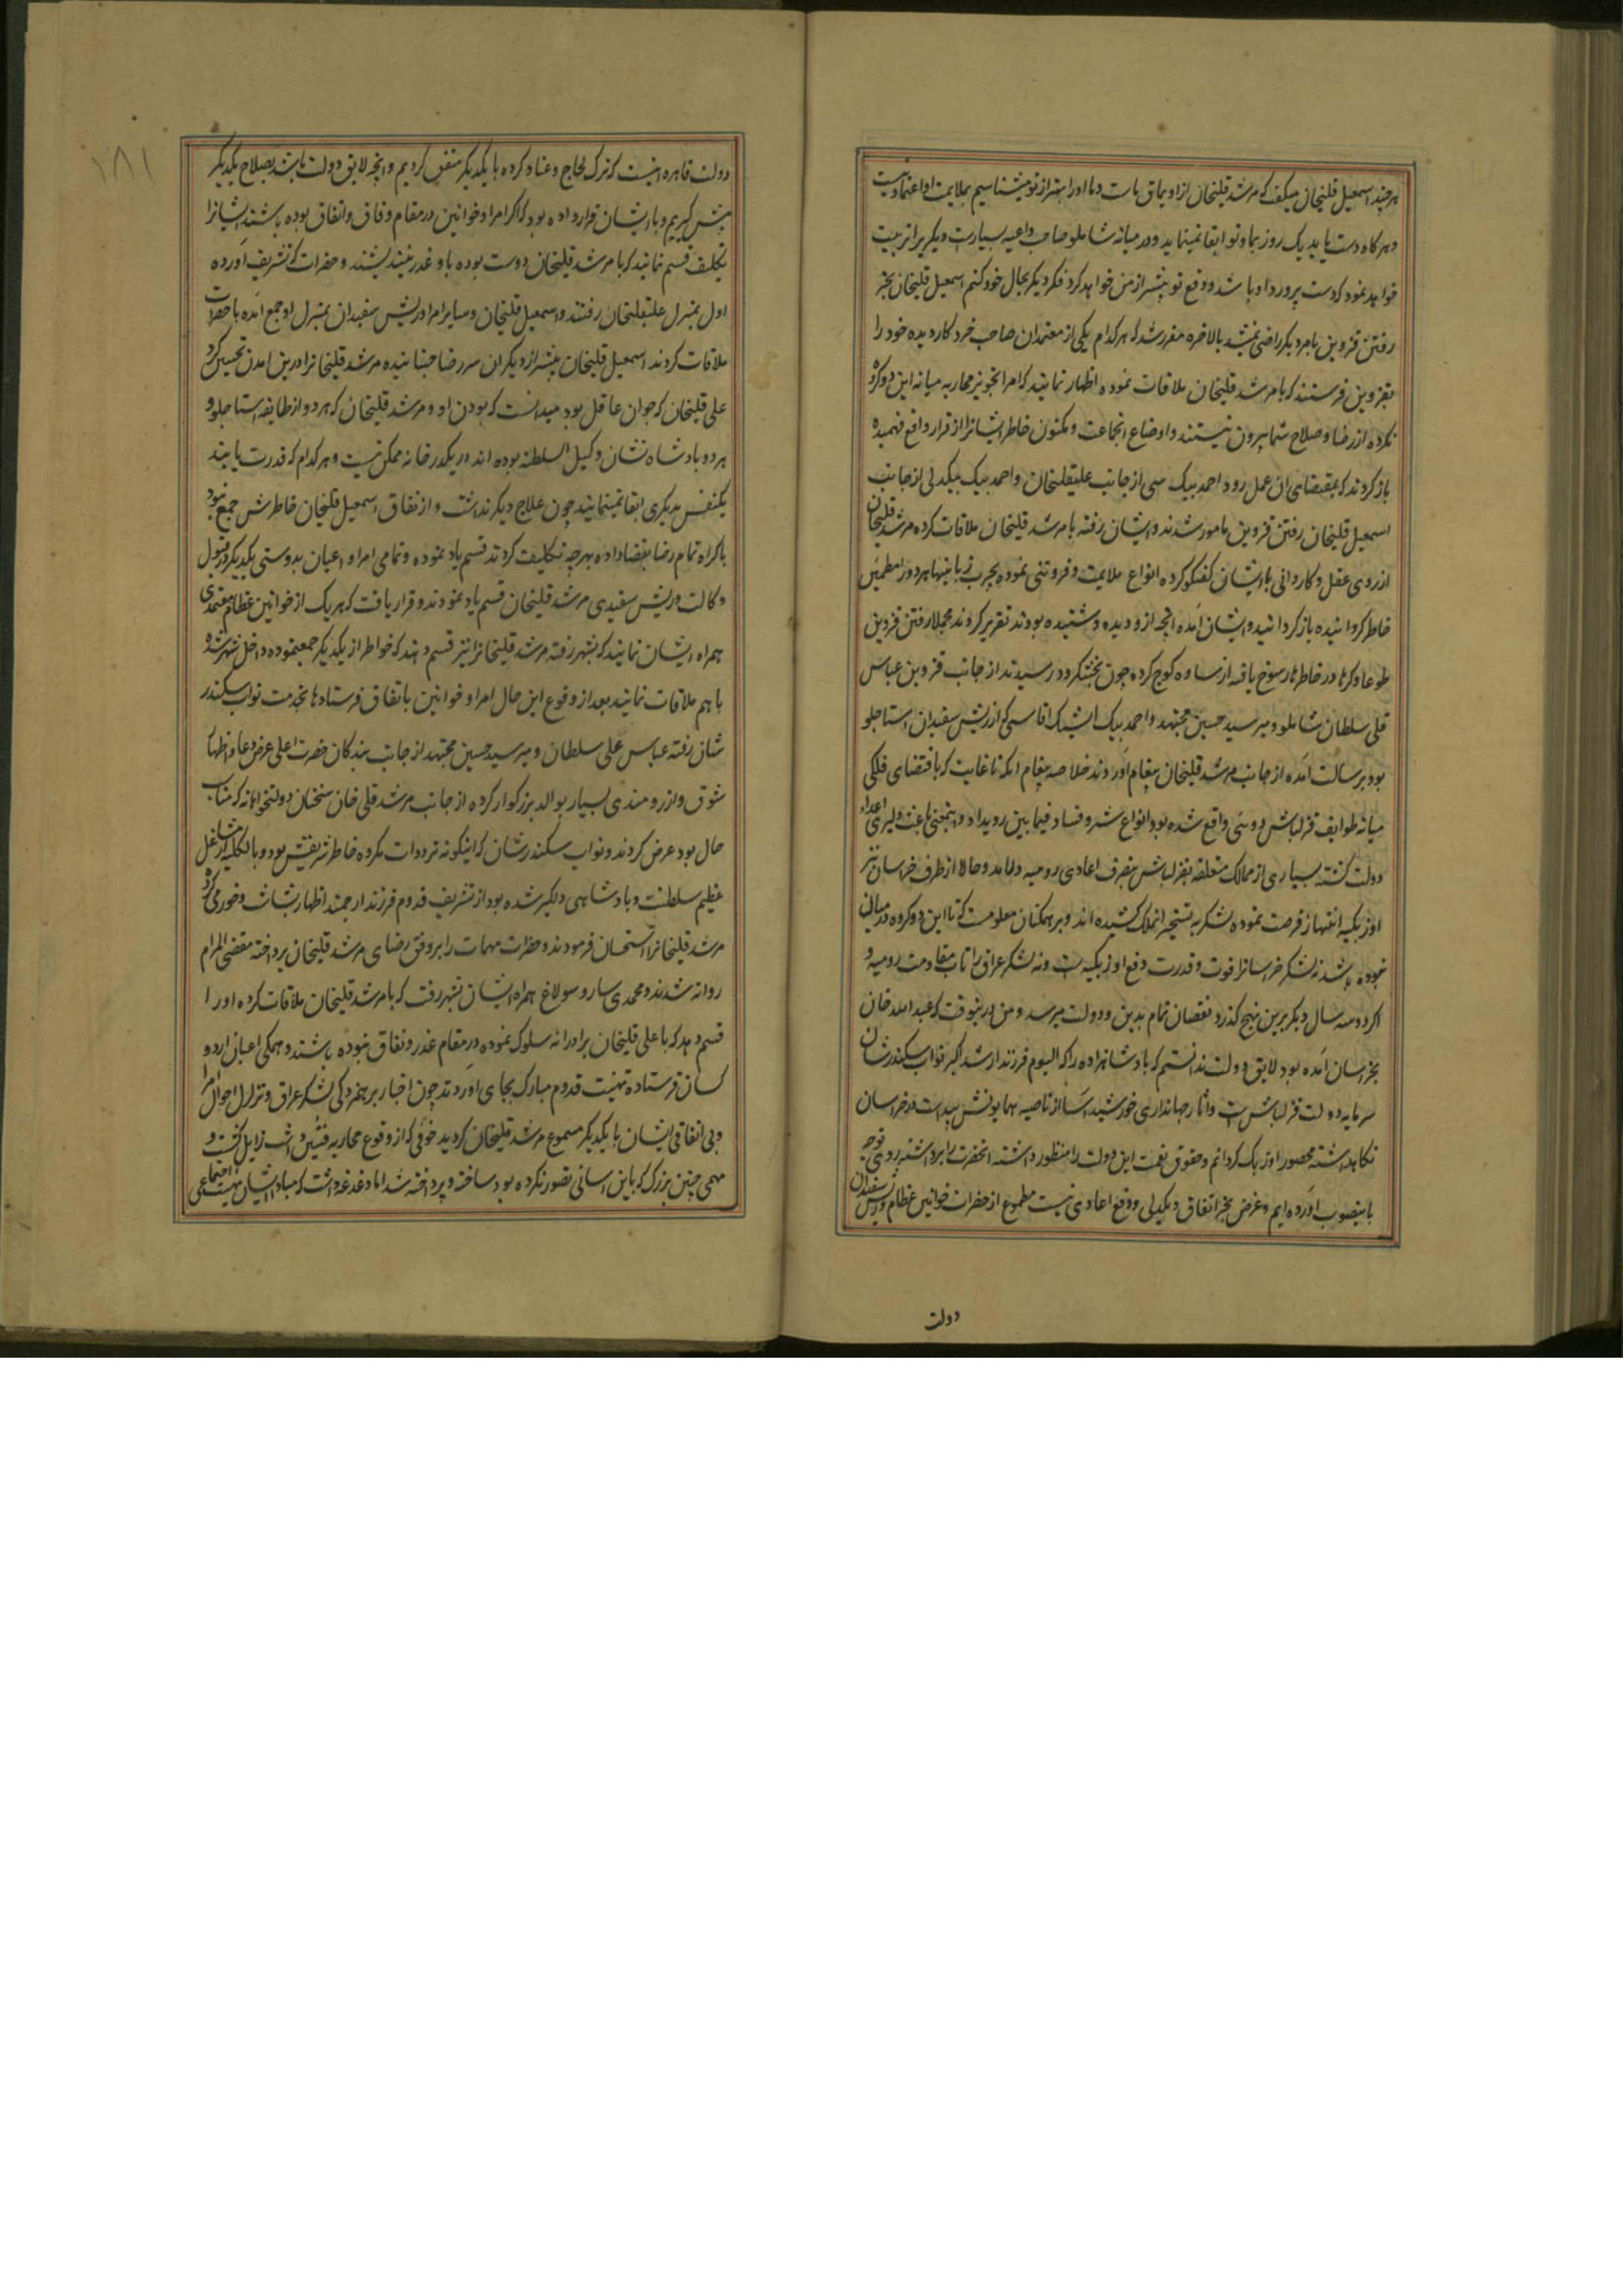 هر چند اسمعیل قلیخان میگفت که مرشد قلیخان از اویماق ماست و ما او را بهتر از تو میشناسیم بملایمت او اعتماد نیست
و هر کاه دست یابد یک روز بما و تو ابقا نمینماید و در میانه شاملو صاحب داعیه بسیارست دیگریرا تربیت
خواهد نمود که دست پرورد او باشد و دفع تو پیشتر از من خواهد کرد فکر دیگر بحال خود کنم اسمعیل قلیخان بجز
رفتن قزوین بامر دیگر راضی نمیشد بالاخره مقرر شد که هر کدام یکی از معتمدان صاحب خرد کاردیده خود را
بقزوین فرستند که با مرشد قلیخان ملاقات نموده اظهار نمایند که امرا تجویز محاربه میانه این دو کروه
نکرده از رضا و صلاح شما بیرون نیستند و اوضاع انجماعت و مکنون خاطر ایشانرا از قرار واقع فهمیده
باز کردند که بمقتضای ان عمل رود احمد بیک از جانب علیقلیخان و احمد بیک بیکدلی از جانب
اسمعیل قلیخان رفتن قزوین مامور شدند و ایشان رفته با مرشد قلیخان ملاقات کرده مرشد قلیخان
از روی عقل و کاردانی با ایشان کفتکو کرده انواع ملایمت و فروتنی نموده بچرب زبانیها هر دو را مطمئن
خاطر کردانیده باز کردانید و ایشان امده انچه ازو دیده و شنیده بودند تقریر کردند مجملا رفتن قزوین
طوعا و کرها در خاطرها رسوخ یافته از ساوه کوچ کرده چون بخشکرود رسیدند از جانب قزوین عباس
قلی سلطان شاملو و میر سید حسین مجتهد و احمد بیک ایشک اقاسی که از ریش سفیدان استاجلو
بود برسالت امده از جانب مرشد قلیخان پیغام اوردند خلاصه پیغام انکه تا غایت که باقتضای فلکی
میانه طوایف قزلباش دوئی واقع شده بود انواع شر و فساد فیمابین رویداد و اینمعنی باعث دلیری اعداء
دولت کشته بسیاری از ممالک متعلقه بقزلباش بتصرف اعادی رومیه درامد و حالا از طرف خراسان نیز
اوزبکیه انتهاز فرصت نموده لشکر به تسخیر انملک کشیده اند و بر همکنان معلومست که تا این دو کروه در میان
نبوده باشد نه لشکر خراسانرا قوت و قدرت دفع اوزبکیه است و نه لشکر عراق را تاب مقاومت رومیه و
اکر دو سه سال دیگر برین نهج کذرد نقصان تمام بدین و دولت میرسد و من درینوقت که عبدالله خان
بخراسان امده بود لایق دولت ندانستم که پادشاهزاده را که الیوم فرزند ارشد اکبر نواب سکندرشان
سرمایه دولت قزلباش است و اثار جهانداری خورشید اسا از ناصیه همایونش پیداست در خراسان
نکاهداشته محصور اوزبک کردانم و حقوق نعمت این دولت را منظور داشته انحضرت را برداشته روی توجه
باینصوب اورده ایم و غرض بجز اتفاق و یکدلی و دفع اعادی نیست مطموع از حضرات خوانین عظام و ریش سفیدان
دولت
۱۸۱
دولت قاهره انست که ترک لجاج و عناد کرده با یکدیگر متفق کردیم و انچه لایق دولت باشد بصلاح یکدیگر
پیش کیریم و با ایشان قرار داده بود که اکر امرا و خوانین در مقام وفاق و اتفاق بوده باشند ایشانرا
تکلیف قسم نمایند که با مرشد قلیخان دوست بوده باو غدر نیندیشند و حضرات که تشریف اورده
اول بمنزل علیقلیخان رفتند و اسمعیل قلیخان و سایر امرا و ریش سفیدان بمنزل او جمع امده با حضرات
ملاقات کردند اسمعیل قلیخان پیشتر از دیکران سر رضا جنبانیده مرشد قلیخانرا درین امدن تحسین کرد
علی قلیخان که جوان عاقل بود میدانست که بودن او و مرشد قلیخان که هر دو از طایفه استاجلو و
هر دو پادشاه نشان و وکیل السلطنه بوده اند در یکدرخانه ممکن نیست و هر کدام که قدرت یابند
یکنفس بدیگری ابقا نمینمایند چون علاج دیگر نداشت و از نفاق اسمعیل قلیخان خاطرش جمع نبود
باکراه تمام رضا بقضا داده بهرچه تکلیف کردند قسم یاد نموده و تمامی امرا و اعیان بدوستی یکدیگر و قبول
وکالت و ریش سفیدی مرشد قلیخان قسم یاد نمودند و قرار یافت که هر یک از خوانین عظام معتمدی
همراه ایشان نمایند که بشهر رفته مرشد قلیخانرا نیز قسم دهند که خواطر از یکدیگر جمع نموده داخل شهر شده
با هم ملاقات نمایند بعد از وقوع این حال امرا و خوانین باتفاق فرستادها بخدمت نواب سکندر
شان رفته عباس علی سلطان و میر سید حسین مجتهد از جانب بندکان حضرت اعلی عرض دعا و اظهار
شوق و ارزومندی بسیار بوالد بزرکوار کرده از جانب مرشد قلی خان سخنان دولتخواهانه که مناسب
حال بود عرض کردند و نواب سکندرشان که اینکونه ترددات مکروه خاطر شریفش بود و بالکلیه از شغل
عظیم سلطنت و پادشاهی دلگیر شده بود از تشریف قدوم فرزند ارجمند اظهار بشاشت و خورمی کرد
مرشد قلیخانرا استحسان فرمودند و حضرات مهمات را بر وفق رضای مرشد قلیخان پرداخته مقضی المرام
روانه شدند و محمدی سارو سولاغ همراه ایشان بشهر رفت که با مرشد قلیخان ملاقات کرده او را
قسم دهد که با علی قلیخان برادرانه سلوک نموده در مقام غدر و نفاق نبوده باشند و همکی اعیان اردو
کسان فرستاده تهنیت قدوم مبارک بجای اوردند چون اخبار برهمزدکی لشکر عراق و تزلزل احوال امرا
و بی اتفاقی ایشان با یکدیگر مسموع مرشد قلیخان کردید خوفی که از وقوع محاربه فئتین داشت زایل کشت و
مهمی چنین بزرک که باین اسانی تصور نکرده بود ساخته و پرداخته شد اما دغدغه داشت که مبادا ایشان بهیئت اجتماعی